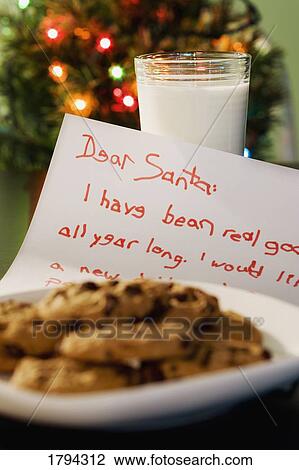 Dear Santa:
I have bean real
all year long. I would
a new
fotosearch
1794312 www.fotosearch.com